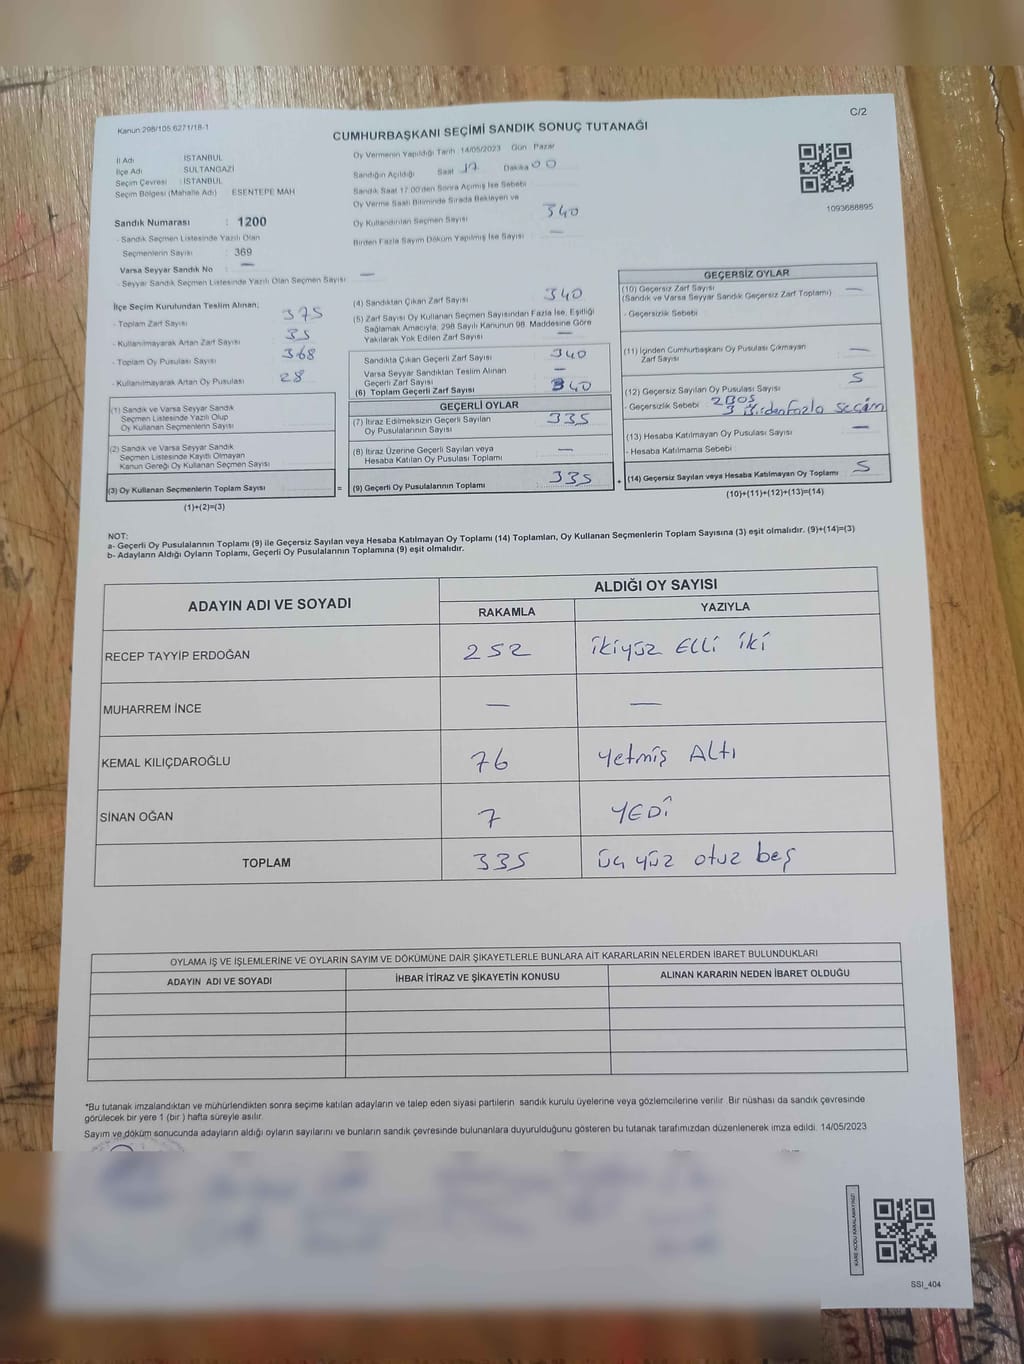 C/2
Kanun 298/105.6271/18-1
CUMHURBAŞKANI SEÇİMİ SANDIK SONUÇ TUTANAĞI
İl Adı : İSTANBUL
İlçe Adı : SULTANGAZİ
Seçim Çevresi : İSTANBUL
Seçim Bölgesi (Mahalle Adı) : ESENTEPE MAH
Sandık Numarası : 1200
- Sandık Seçmen Listesinde Yazılı Olan
Seçmenlerin Sayısı : 369
Varsa Seyyar Sandık No : —
- Seyyar Sandık Seçmen Listesinde Yazılı Olan Seçmen Sayısı : —
Oy Vermenin Yapıldığı Tarih : 14/05/2023 Gün : Pazar
Sandığın Açıldığı Saat 17 Dakika 00
Sandık Saat 17:00'den Sonra Açımış İse Sebebi
Oy Verme Saati Bitiminde Sırada Bekleyen ve
Oy Kullandırılan Seçmen Sayısı : 340
Birden Fazla Sayım Döküm Yapılmış İse Sayısı : —
1093688895
İlçe Seçim Kurulundan Teslim Alınan;
- Toplam Zarf Sayısı 375
- Kullanılmayarak Artan Zarf Sayısı 35
- Toplam Oy Pusulası Sayısı 368
- Kullanılmayarak Artan Oy Pusulası 28
(1) Sandık ve Varsa Seyyar Sandık
Seçmen Listesinde Yazılı Olup
Oy Kullanan Seçmenlerin Sayısı
(2) Sandık ve Varsa Seyyar Sandık
Seçmen Listesinde Kayıtlı Olmayan
Kanun Gereği Oy Kullanan Seçmen Sayısı
(3) Oy Kullanan Seçmenlerin Toplam Sayısı
(1)+(2)=(3)
=
(4) Sandıktan Çıkan Zarf Sayısı 340
(5) Zarf Sayısı Oy Kullanan Seçmen Sayısından Fazla İse, Eşitliği
Sağlamak Amacıyla, 298 Sayılı Kanunun 98. Maddesine Göre
Yakılarak Yok Edilen Zarf Sayısı —
Sandıkta Çıkan Geçerli Zarf Sayısı 340
Varsa Seyyar Sandıktan Teslim Alınan
Geçerli Zarf Sayısı —
(6) Toplam Geçerli Zarf Sayısı 340
GEÇERLİ OYLAR
(7) İtiraz Edilmeksizin Geçerli Sayılan
Oy Pusulalarının Sayısı : 335
(8) İtiraz Üzerine Geçerli Sayılan veya
Hesaba Katılan Oy Pusulası Toplamı : —
(9) Geçerli Oy Pusulalarının Toplamı : 335
+
GEÇERSİZ OYLAR
(10) Geçersiz Zarf Sayısı —
(Sandık ve Varsa Seyyar Sandık Geçersiz Zarf Toplamı)
- Geçersizlik Sebebi
(11) İçinden Cumhurbaşkanı Oy Pusulası Çıkmayan
Zarf Sayısı —
(12) Geçersiz Sayılan Oy Pusulası Sayısı 5
- Geçersizlik Sebebi 2 BOŞ
3 Birden fazla seçim
(13) Hesaba Katılmayan Oy Pusulası Sayısı : —
- Hesaba Katılmama Sebebi :
(14) Geçersiz Sayılan veya Hesaba Katılmayan Oy Toplamı 5
(10)+(11)+(12)+(13)=(14)
NOT:
a- Geçerli Oy Pusulalarının Toplamı (9) ile Geçersiz Sayılan veya Hesaba Katılmayan Oy Toplamı (14) Toplamları, Oy Kullanan Seçmenlerin Toplam Sayısına (3) eşit olmalıdır. (9)+(14)=(3)
b- Adayların Aldığı Oyların Toplamı, Geçerli Oy Pusulalarının Toplamına (9) eşit olmalıdır.
ADAYIN ADI VE SOYADI
ALDIĞI OY SAYISI
RAKAMLA YAZIYLA
RECEP TAYYİP ERDOĞAN 252 ikiyüz Elli iki
MUHARREM İNCE — —
KEMAL KILIÇDAROĞLU 76 yetmiş Altı
SİNAN OĞAN 7 YEDİ
TOPLAM 335 üç yüz otuz beş
OYLAMA İŞ VE İŞLEMLERİNE VE OYLARIN SAYIM VE DÖKÜMÜNE DAİR ŞİKAYETLERLE BUNLARA AİT KARARLARIN NELERDEN İBARET BULUNDUKLARI
ADAYIN ADI VE SOYADI İHBAR İTİRAZ VE ŞİKAYETİN KONUSU ALINAN KARARIN NEDEN İBARET OLDUĞU
*Bu tutanak imzalandıktan ve mühürlendikten sonra seçime katılan adayların ve talep eden siyasi partilerin sandık kurulu üyelerine veya gözlemcilerine verilir. Bir nüshası da sandık çevresinde
görülecek bir yere 1 (bir) hafta süreyle asılır.
Sayım ve döküm sonucunda adayların aldığı oyların sayılarını ve bunların sandık çevresinde bulunanlara duyurulduğunu gösteren bu tutanak tarafımızdan düzenlenerek imza edildi. 14/05/2023
KARE KODU KARALAMAYINIZ!
SSI_404